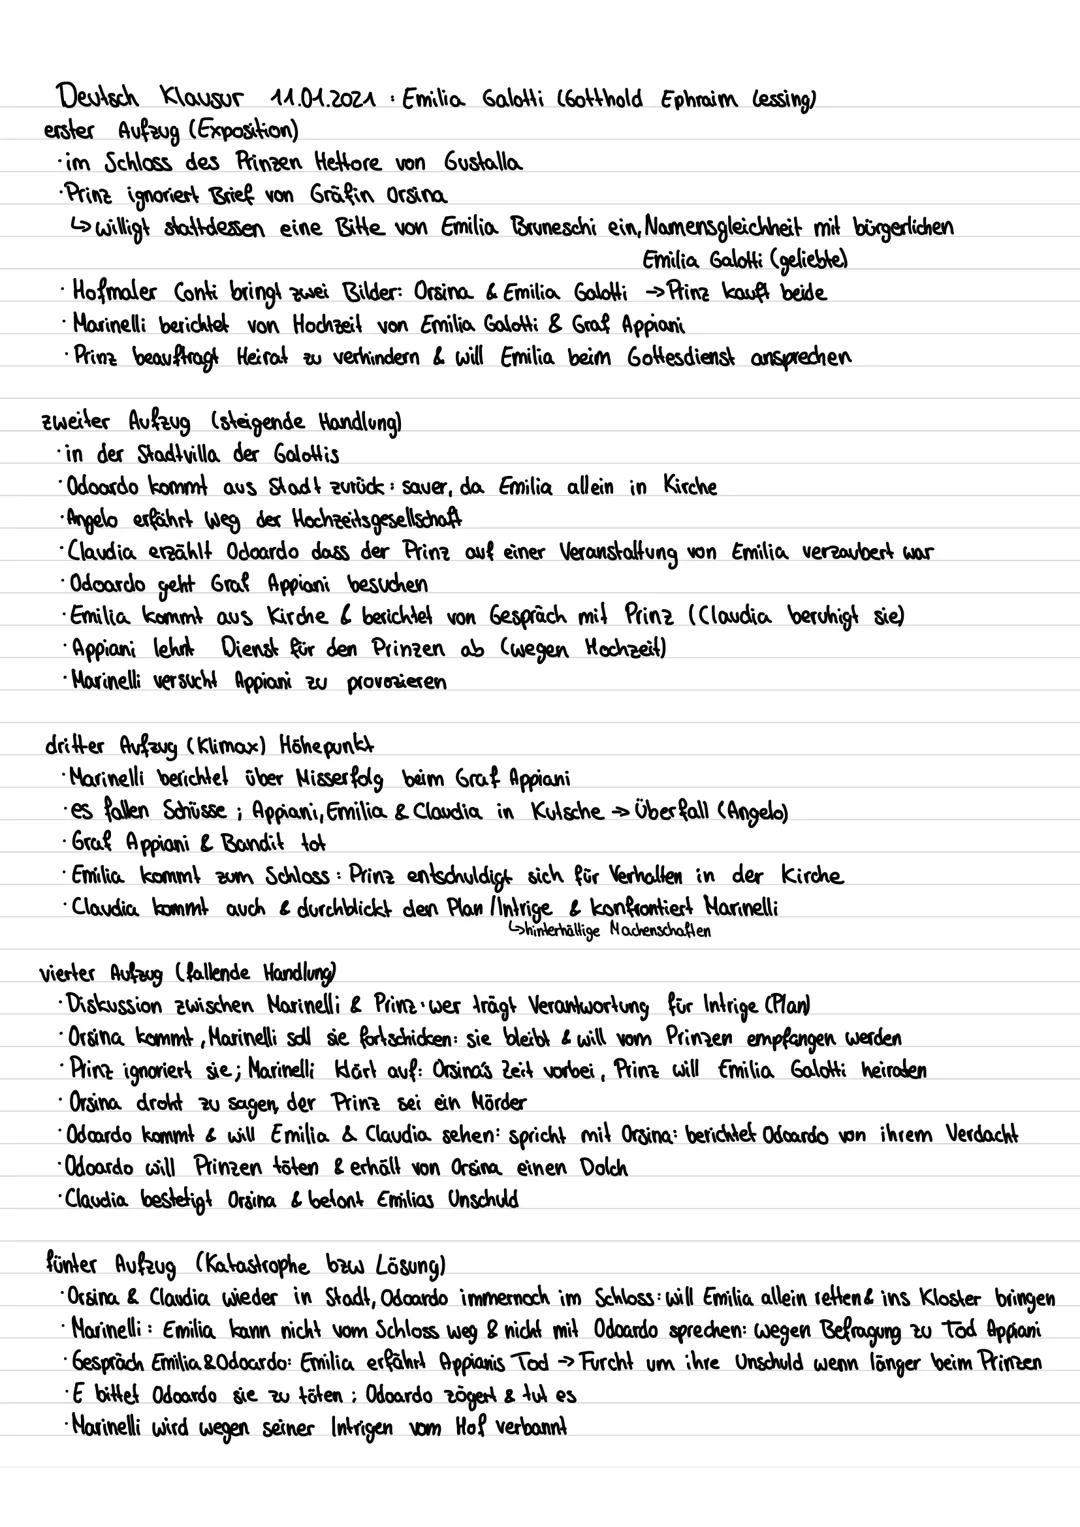 Deutsch Klausur 11.01.2021 : Emilia Galotti (Gotthold Ephraim Lessing)
erster Aufzug (Exposition)
· im Schloss des Prinzen Hettore von Gustalla
· Prinz ignoriert Brief von Gräfin Orsina
↳ willigt stattdessen eine Bitte von Emilia Bruneschi ein, Namensgleichheit mit bürgerlichen
Emilia Galotti (geliebte)
· Hofmaler Conti bringt zwei Bilder: Orsina & Emilia Galotti → Prinz kauft beide
· Marinelli berichtet von Hochzeit von Emilia Galotti & Graf Appiani
· Prinz beauftragt Heirat zu verhindern & will Emilia beim Gottesdienst ansprechen
zweiter Aufzug (steigende Handlung)
· in der Stadtvilla der Galottis
· Odoardo kommt aus Stadt zurück: sauer, da Emilia allein in Kirche
· Angelo erfährt Weg der Hochzeitsgesellschaft
· Claudia erzählt Odoardo dass der Prinz auf einer Veranstaltung von Emilia verzaubert war
· Odoardo geht Graf Appiani besuchen
· Emilia kommt aus Kirche & berichtet von Gespräch mit Prinz (Claudia beruhigt sie)
· Appiani lehnt Dienst für den Prinzen ab (wegen Hochzeit)
· Marinelli versucht Appiani zu provozieren
dritter Aufzug (Klimax) Höhepunkt
· Marinelli berichtet über Misserfolg beim Graf Appiani
· es fallen Schüsse ; Appiani, Emilia & Claudia in Kutsche → Überfall (Angelo)
· Graf Appiani & Bandit tot
· Emilia kommt zum Schloss : Prinz entschuldigt sich für Verhalten in der Kirche
· Claudia kommt auch & durchblickt den Plan / Intrige & konfrontiert Marinelli
↳ hinterhältige Machenschaften
vierter Aufzug (fallende Handlung)
· Diskussion zwischen Marinelli & Prinz: wer trägt Verantwortung für Intrige (Plan)
· Orsina kommt, Marinelli soll sie fortschicken: sie bleibt & will vom Prinzen empfangen werden
· Prinz ignoriert sie; Marinelli klärt auf: Orsina's Zeit vorbei, Prinz will Emilia Galotti heiraten
· Orsina droht zu sagen, der Prinz sei ein Mörder
· Odoardo kommt & will Emilia & Claudia sehen: spricht mit Orsina: berichtet Odoardo von ihrem Verdacht
· Odoardo will Prinzen töten & erhält von Orsina einen Dolch
· Claudia bestetigt Orsina & betont Emilias Unschuld
fünter Aufzug (Katastrophe bzw Lösung)
· Orsina & Claudia wieder in Stadt, Odoardo immernoch im Schloss: will Emilia allein retten & ins Kloster bringen
· Marinelli : Emilia kann nicht vom Schloss weg & nicht mit Odoardo sprechen: wegen Befragung zu Tod Appiani
· Gespräch Emilia & Odoardo: Emilia erfährt Appianis Tod → Furcht um ihre Unschuld wenn länger beim Prinzen
· E bittet Odoardo sie zu töten ; Odoardo zögert & tut es
· Marinelli wird wegen seiner Intrigen vom Hof verbannt